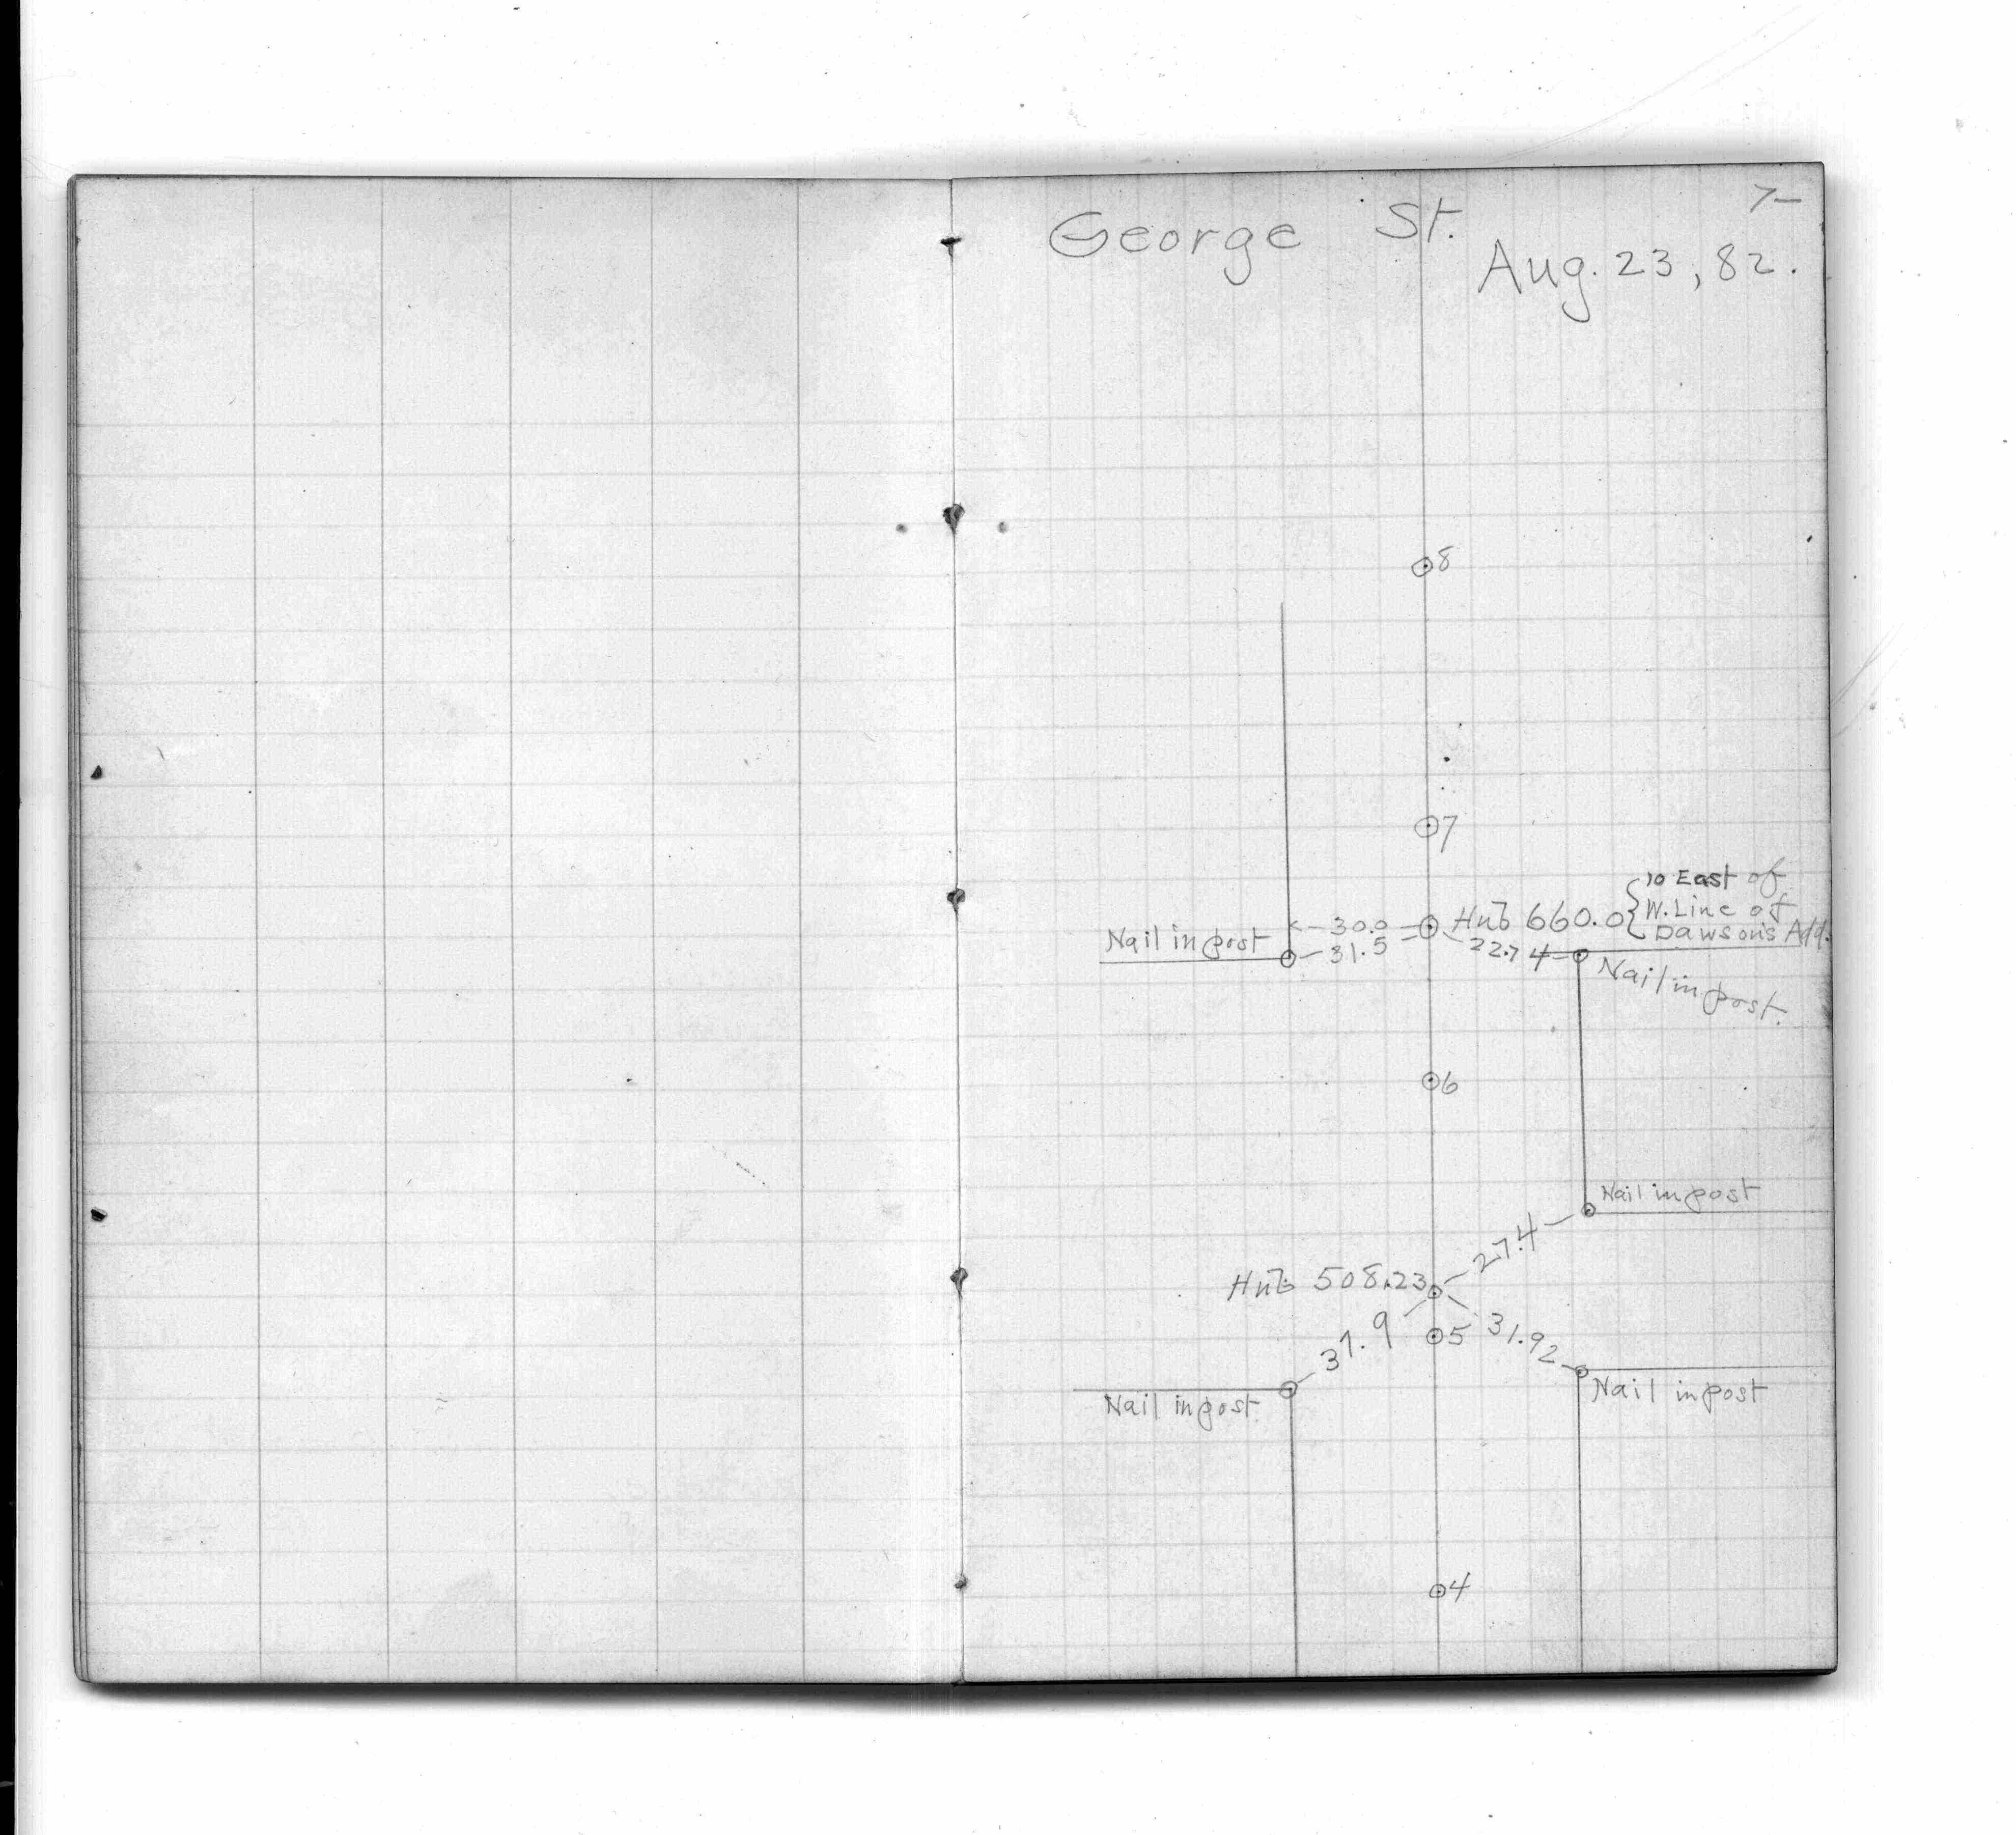 George St.
7
Aug. 23, 82.
8
7
10 East of
W. Line of
Dawsons Add.
Hub 660.0
30.0
Nail in post
31.5
22.74
Nail in post.
6
Nail in post
27.4
Hub 508.23
5
31.92
37.9
Nail in post
Nail in post
4